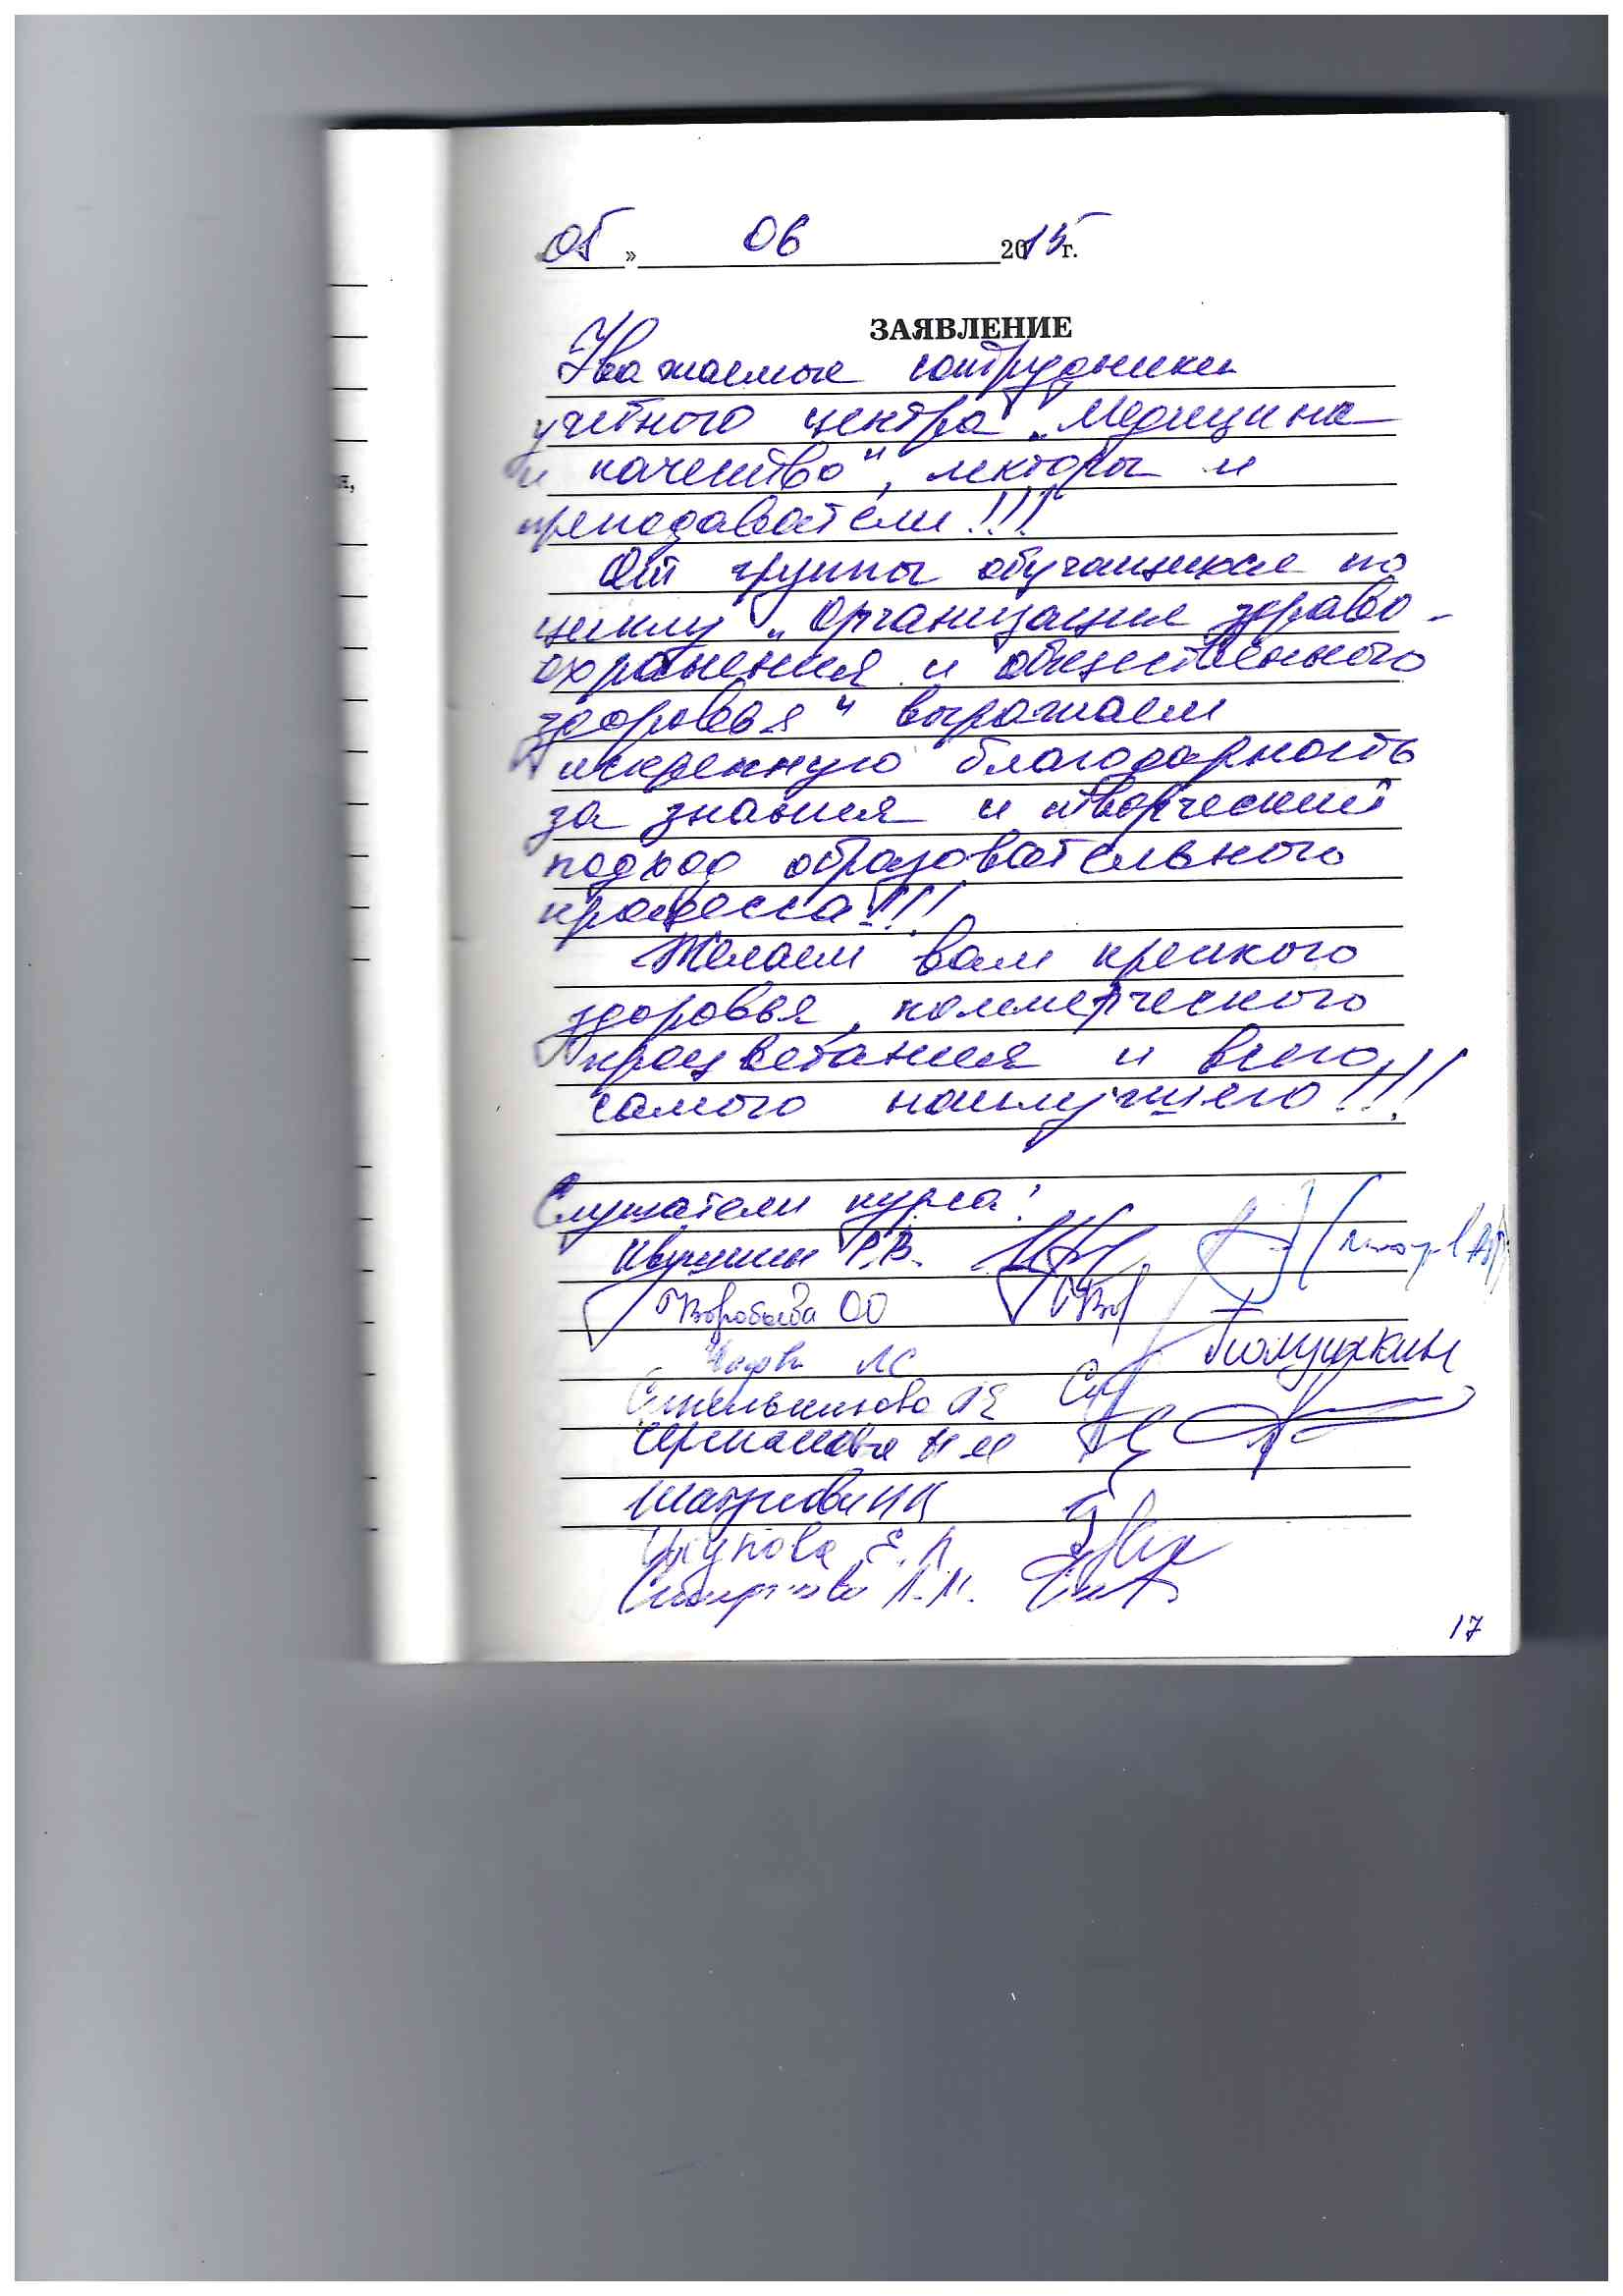 «05» 06 2015 г.
ЗАЯВЛЕНИЕ
Уважаемые сотрудники
учебного центра „Медицина
и качество", лекторы и
преподаватели!!!
От группы обучающихся по
циклу „Организация здраво-
охранения и общественного
здоровья" выражаем
искренную благодарность
за знания и творческий
подход образовательного
процесса!!!
Желаем вам крепкого
здоровья, коммерческого
процветания и всего
самого наилучшего!!!
Слушатели курса:
Р.В.
Воробьева ОО
ЛС
Полушкин
Стельникова
Шатрова
Е.Л.
Смирнова Л.М.
17